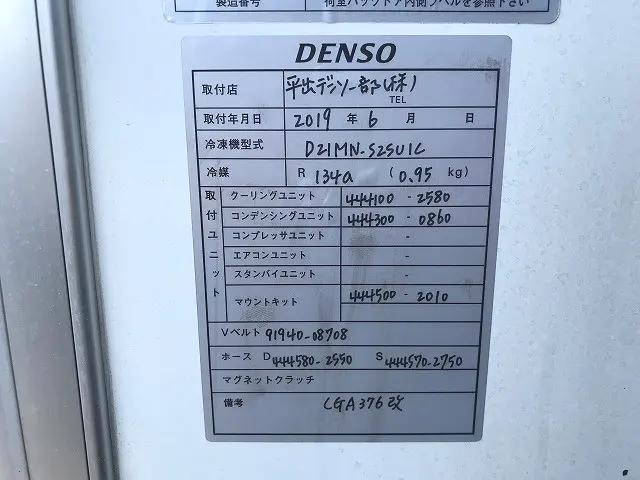 製造番号 荷室バックドア内側ラベルを参照下さい
DENSO
取付店 平出デンソー部(株)
TEL
取付年月日 2019 年 6 月 日
冷凍機型式 D21MN-S25U1C
冷媒 R 134a (0.95 kg)
取付ユニット
クーリングユニット 444100-2580
コンデンシングユニット 444300-0860
コンプレッサユニット -
エアコンユニット -
スタンバイユニット -
マウントキット 444500-2010
Vベルト 91940-08708
ホース D 444580-2550 S 444570-2750
マグネットクラッチ
備考 LGA376改